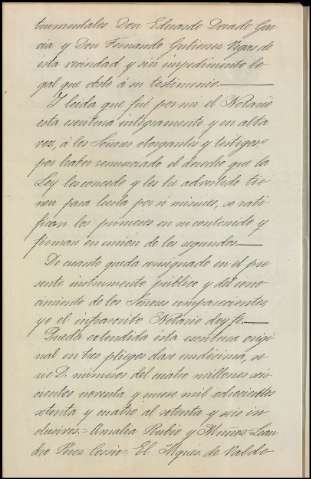 trumentales Don Eduardo Dorado Gar
cia y Don Fernando Gutierrez Vegas de
esta vecindad y sin impedimento le
gal que obste á su testimonio.
Y leida que fué por mi el Notario
esta escritura integramente y en alta
voz, á los Señores otorgantes y testigos
por haber renunciado el derecho que la
Ley les concede y les he advertido tie
nen para leerla por si mismos, se rati
fican los primeros en su contenido y
firman en union de los segundos.
De cuanto queda consignado en el pre
sente instrumento público y del cono
cimiento de los Señores comparecientes
yo el infrascrito Notario doy fé.
Queda extendida esta escritura origi
nal en tres pliegos clase undécima, se
rie D. números del cuatro millones seis
cientos noventa y nueve mil doscientos
setenta y cuatro al setenta y seis in
clusives = Amalia Rubio y Muñoz = Lean
dro Perez Cossio = El Mques. de Valde